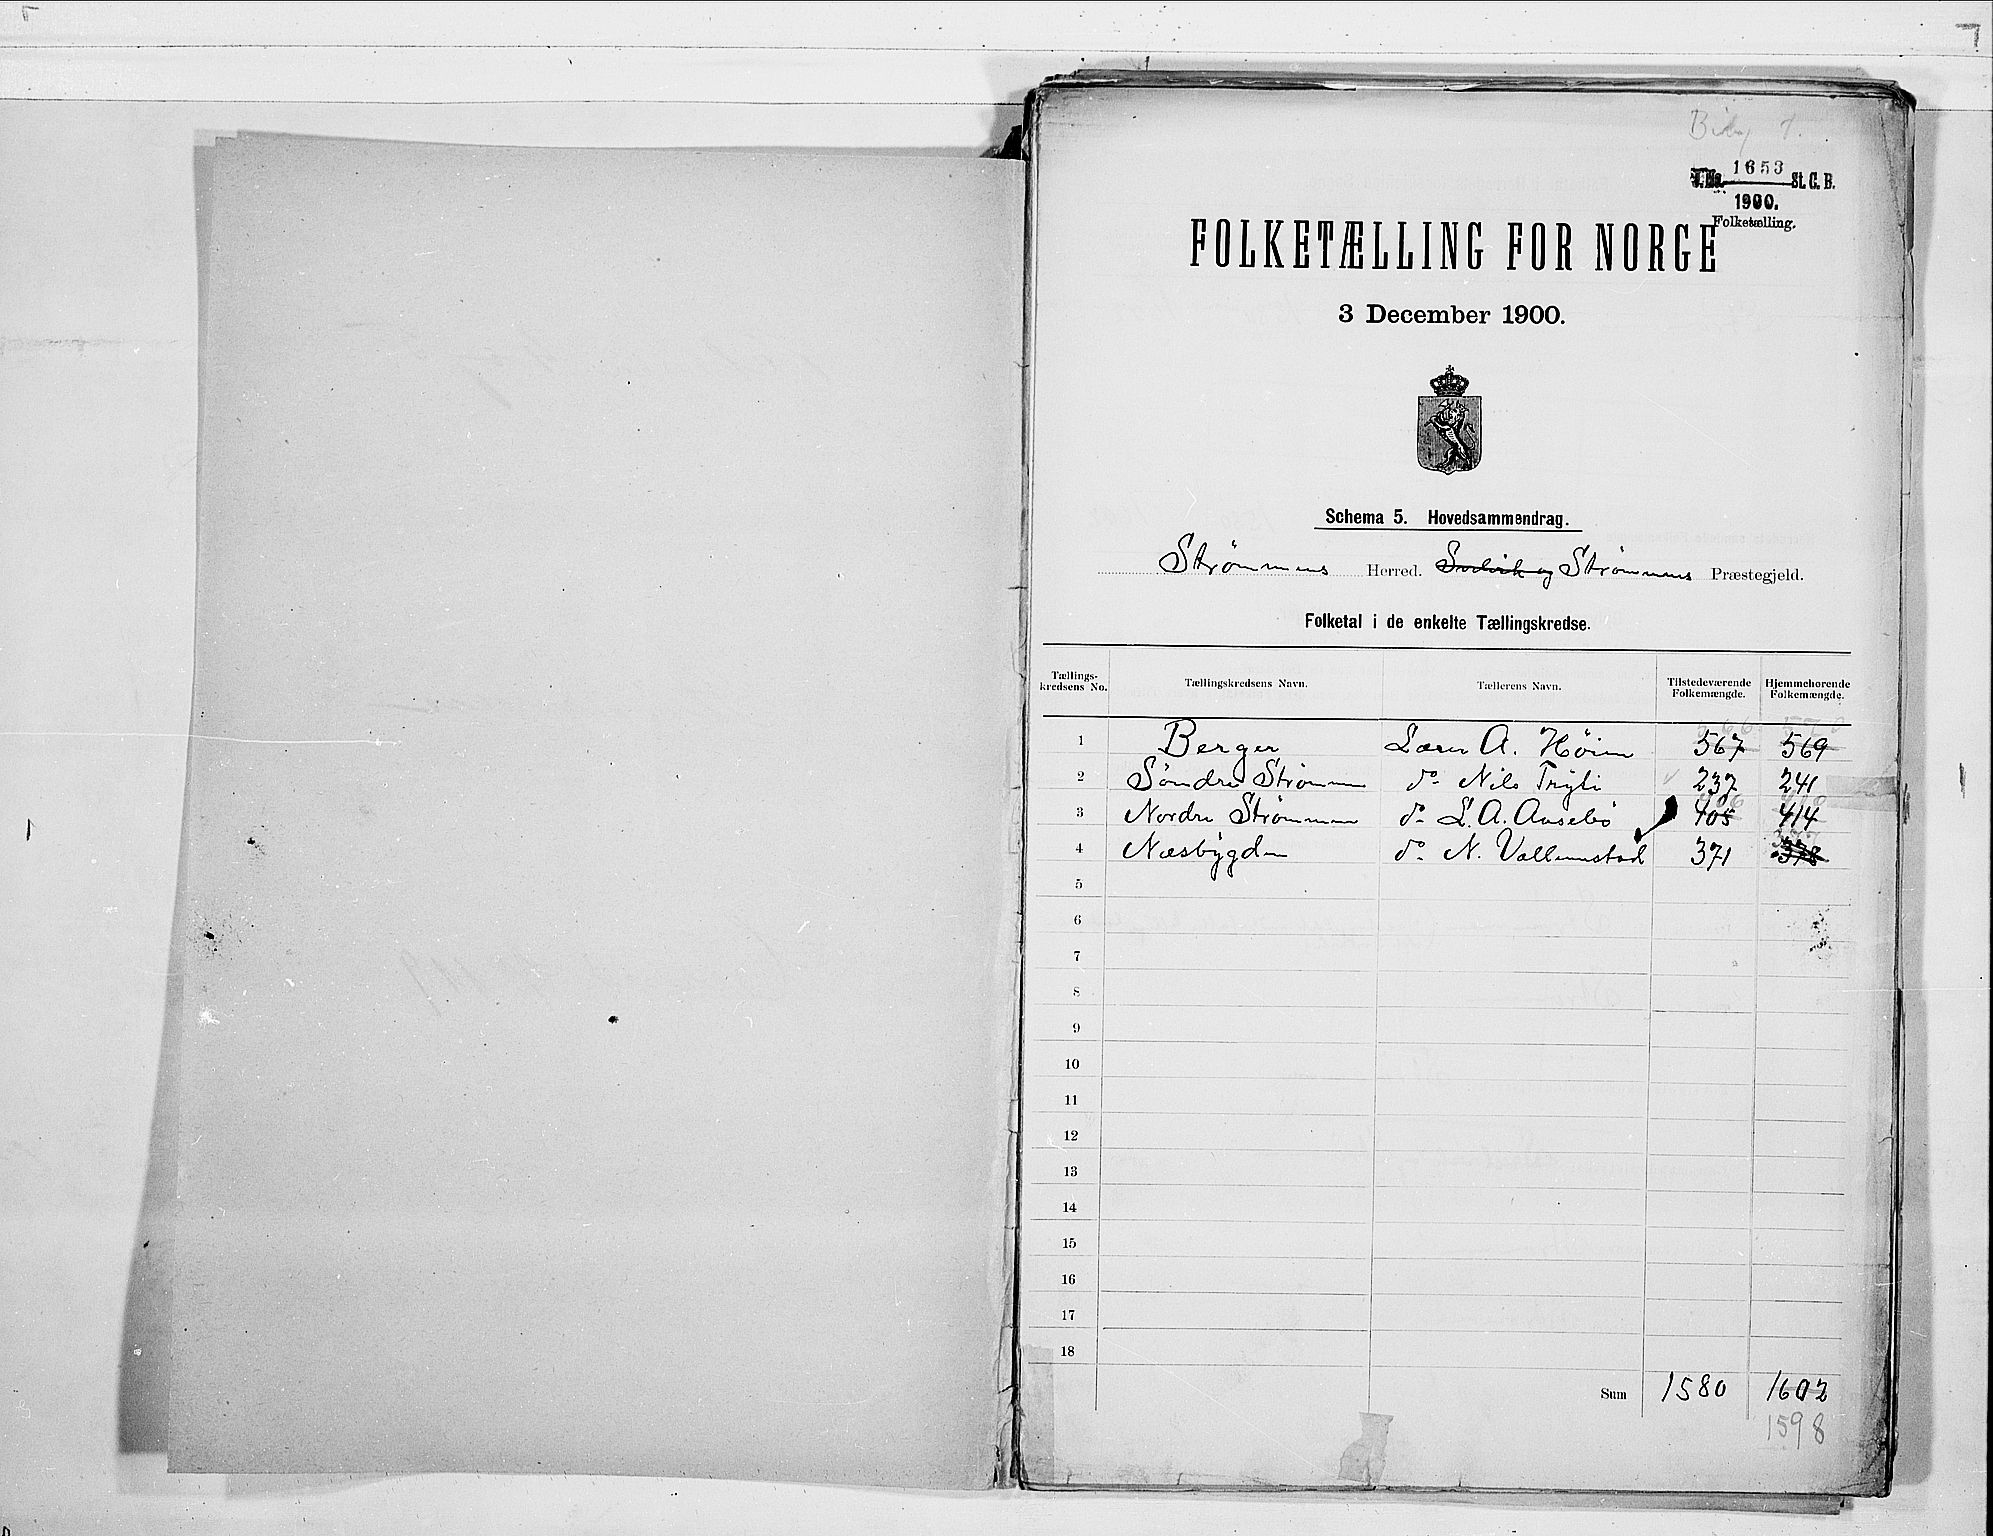 1653
St. C. B.
1900.
Folketælling.
FOLKETÆLLING FOR NORGE
3 December 1900.
Schema 5. Hovedsammendrag.
Strømmens Herred. Svelvik og Strømmens Præstegjeld.
Folketal i de enkelte Tællingskredse.
Tællings-kredsens No. Tællingskredsens Navn. Tællerens Navn. Tilstedeværende Folkemængde. Hjemmehørende Folkemængde.
1 Berger A. Høien 567 569
2 Søndre Strømmen do Nils Trygli 237 241
3 Nordre Strømmen do L. A. Aasebø 405 414
4 Næsbygden do N. 371 378
5
6
7
8
9
10
11
12
13
14
15
16
17
18
Sum 1580 1602
1598